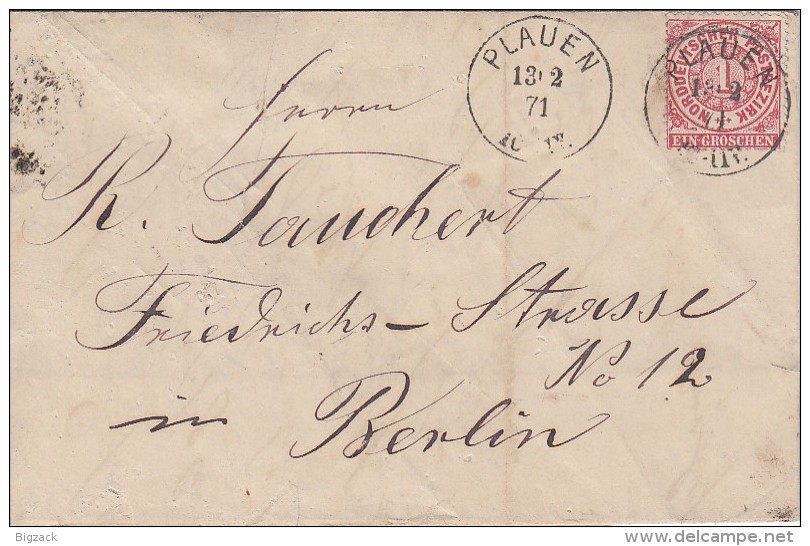 PLAUEN
13 2
71
PLAUEN
71
NORDDEUTSCHER POSTBEZIRK
1
EIN GROSCHEN
Herrn
R. Tauchert
Friedrichs-Strasse
No 12
in Berlin
Bigzack
delcampe.net